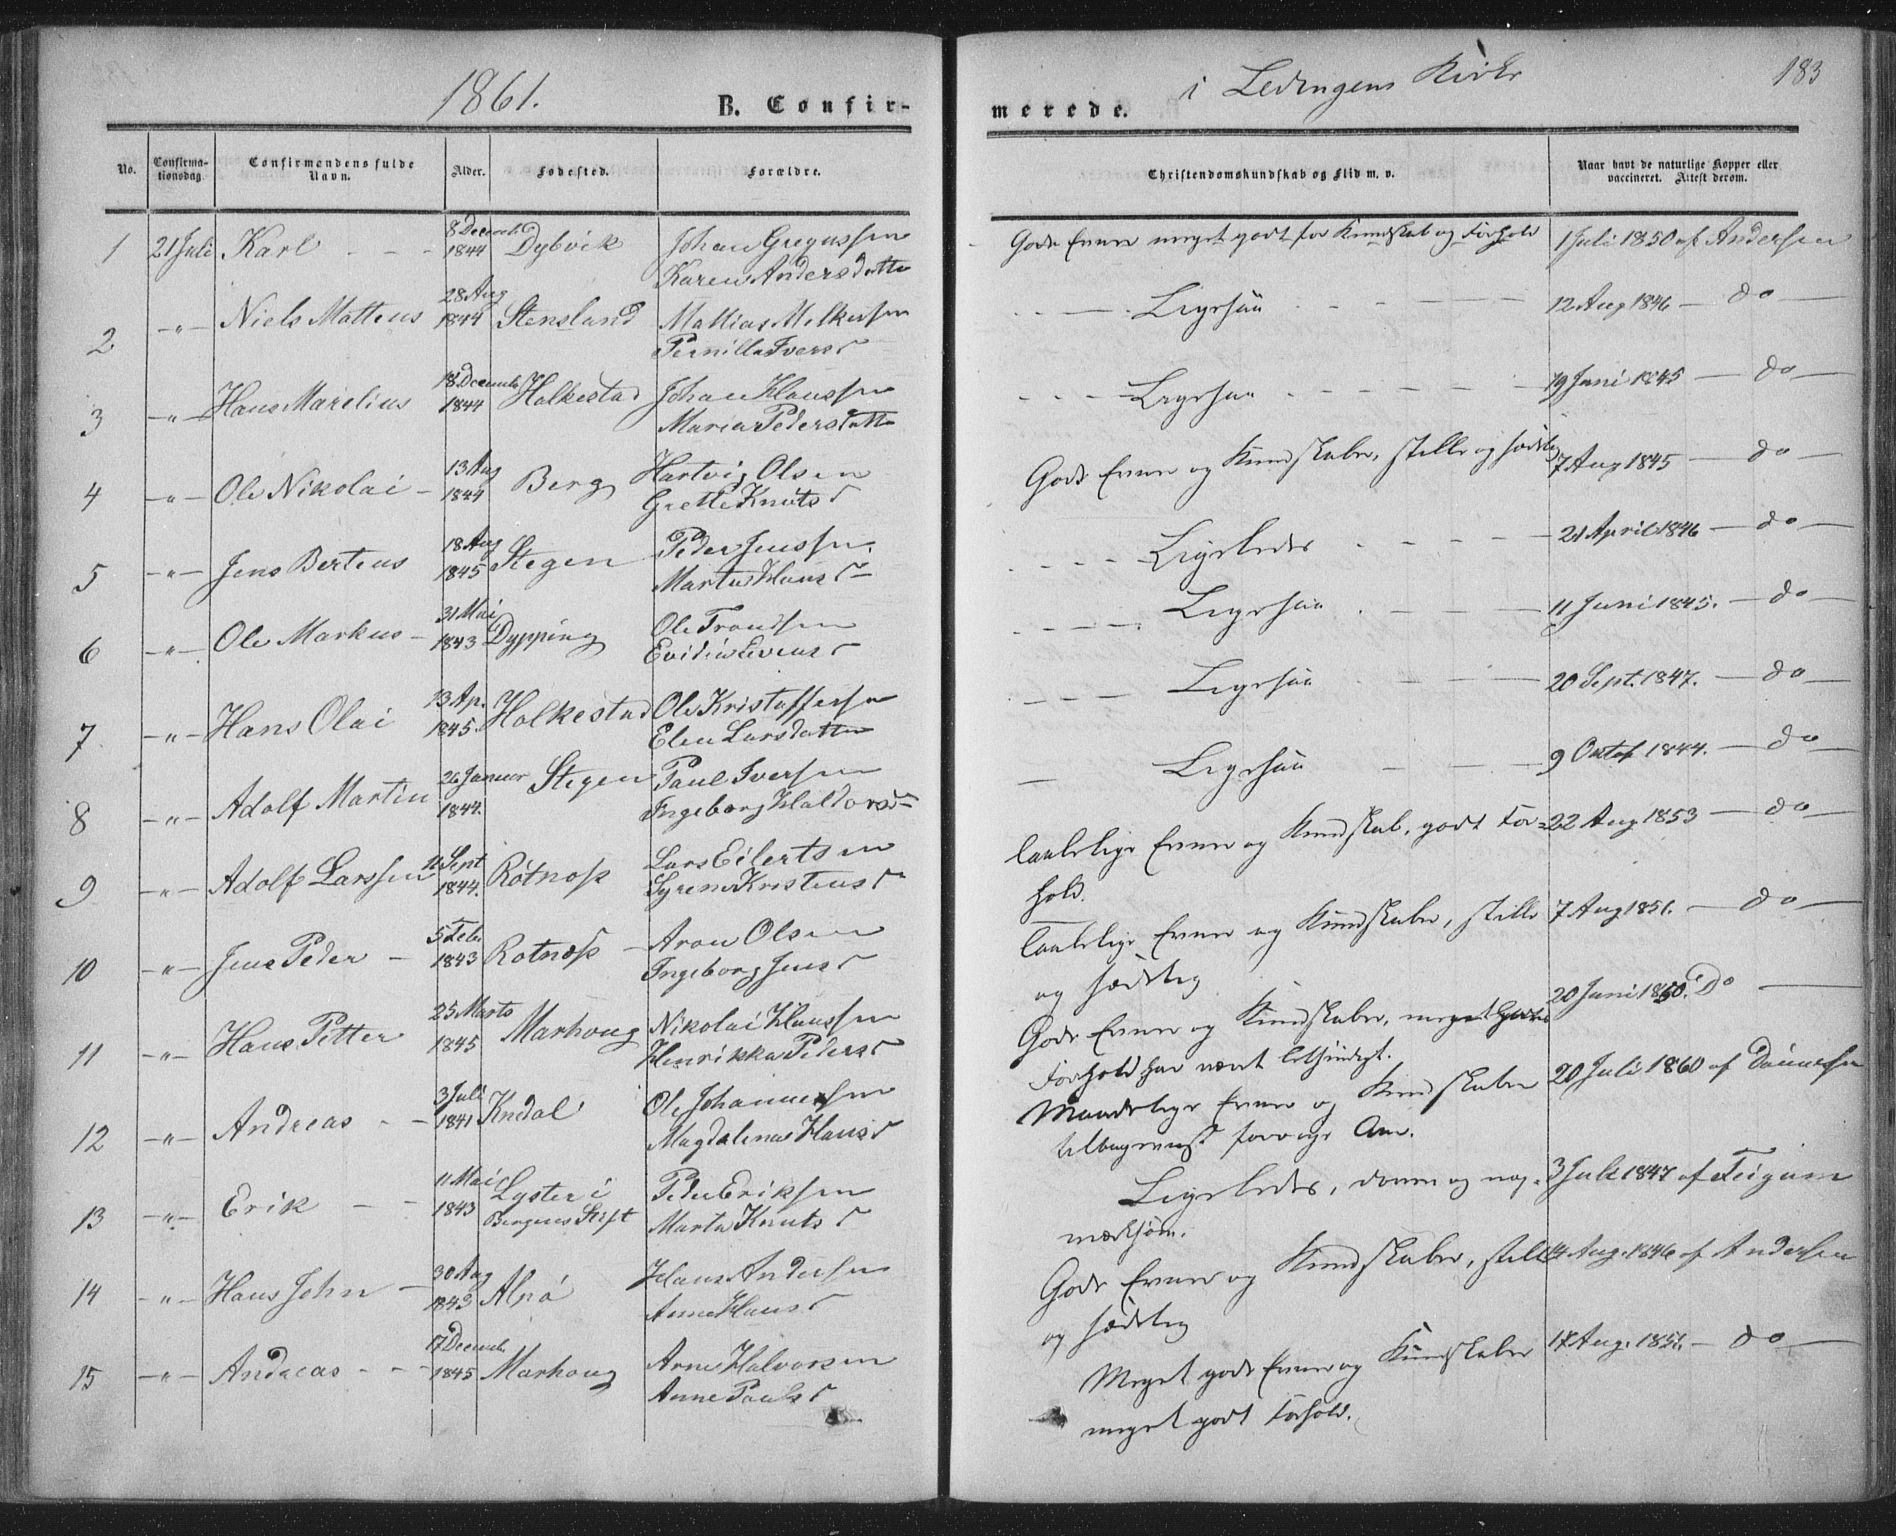 1861.
B. Confir-
merede.
i Ledingens Kirke
183
No.
Confirma-
tionsdag.
Confirmandens fulde
Navn.
Alder.
Fødested.
Forældre.
Christendomskundskab og Flid m. v.
Naar havt de naturlige Kopper eller
vaccineret. Attest derom.
1 21 Juli Karl 8 Decemb 1844 Dybvik Johan Gregussen
Karen Andersdatter
Gode Evner meget godt for Kundskab og Forhold 1 Juli 1850 af Andersen
2 -"- Niels Matteus 28 Aug 1844 Stensland Mattias Melkersen
Pernilla Ivers d
Ligesaa 12 Aug 1846 - do -
3 -"- Hans Marelius 18 Decemb 1844 Holkestad Johan Hanssen
Maria Pedersdatter
Ligesaa 19 Juni 1845 - do -
4 -"- Ole Nikolai - 13 Aug 1844 Berg Hartvig Olsen
Grethe Knuts d
Gode Evner og Kundskaber, stille og sædelig 7 Aug 1845 - do -
5 -"- Jens Berteus 18 Aug 1845 Stegen Peder Jenssen
Marta Hans d -
Ligeledes 21 April 1846 - do -
6 -"- Ole Markus - 31 Mai 1843 Dypping Ole Trondsen
Evens d
Ligesaa 11 Juni 1845. - do -
7 -"- Hans Olai 13 Ap. 1845. Holkestad Ole Kristoffersen
Elen Larsdatter
Ligesaa 20 Sept. 1847. - do -
8 -"- Adolf Martin 26 Januar 1844. Stegen Paul Iversen
Ingeborg Haldors d -
Ligesaa 9 Octob 1844. - do -
9 -"- Adolf Larssen Sept 1844. Rotnæss Lars Eilertsen
Syrene Kristens d
Taalelige Evner og Kundskab, godt For- 22 Aug 1853 - do -
hold.
10 -"- Jens Peder - 5 Feb 1843 Rotnæss - Aron Olsen
Ingeborg Jens d
Taalelige Evner og Kundskaber, stille 7 Aug 1851. - do -
og sædelig
11 -"- Hans Petter 25 Marts 1845 Marhoug Nikolai Hanssen
Henrikka Peders d
Gode Evner og Kundskaber, meget godt 20 Juni 1850. Do -
Forhold har været letsindigt.
12 -"- Andreas - - 3 Juli 1841 Kndal Ole Johannessen
Magdalena Hans d
Maadelige Evner og Kundskaber 20 Juli 1860 af
tilbagevist forrige Aar.
13 -"- Erik - - 11 Mai 1843 Lyster i
Bergens Stift
Peder Eriksen
Marta Knuts d
Ligeledes, doven og uop- 3 Juli 1847 af Feigum
mærksom.
14 -"- Hans John - 30 Aug 1843 Alpø Hans Andersen
Anne Hans d
Gode Evner og Kundskaber, stille 14 Aug. 1846 af Andersen
og sædelig
15 -"- Andreas - - 17 Decemb. 1845 Marhoug Arne Halvorsen
Anne Pauls d
Meget gode Evner og Kundskaber 14 Aug. 1851. - do -
meget godt Forhold.